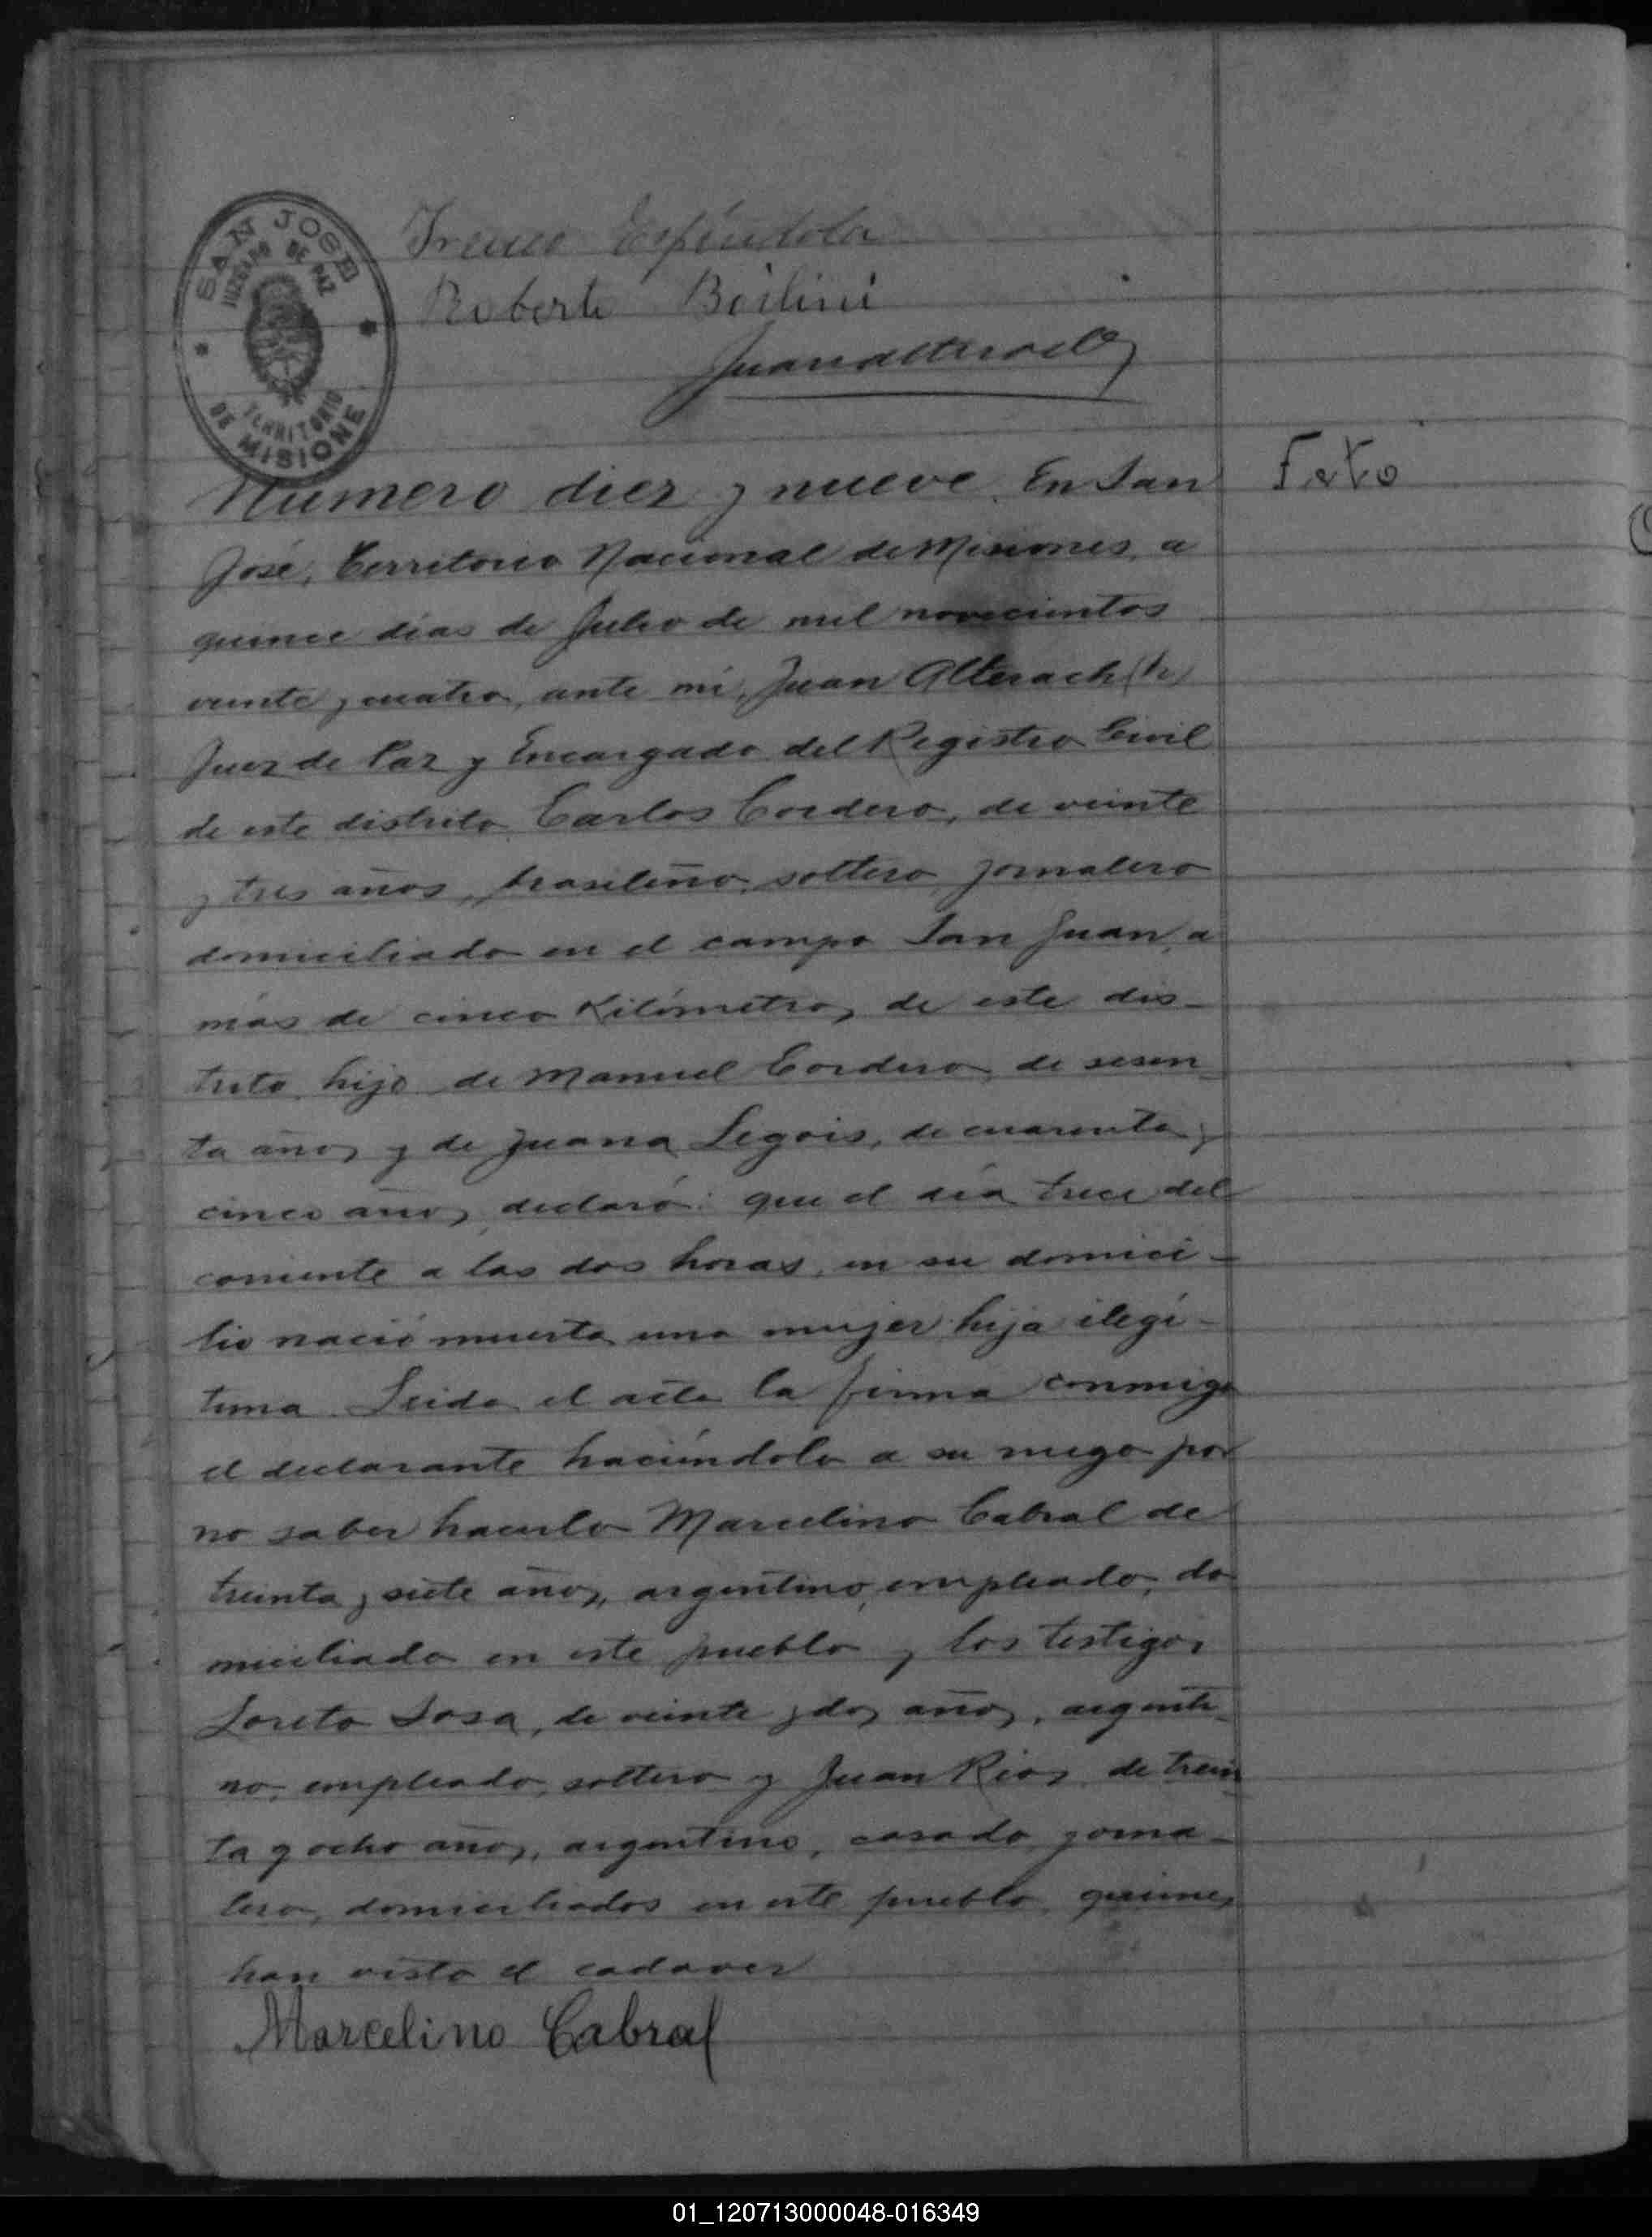 SAN JOSE
JUZGADO DE PAZ
TERRITORIO
DE MISIONE
Ireneo Espíndola
Roberto Boilini
Juan Alterach
Numero diez y nueve. En San
Feto
José, Territorio Nacional de Misiones, a
quince dias de Julio de mil novecientos
veinte y cuatro, ante mi, Juan Alterach (h)
Juez de Paz y Encargado del Registro Civil
de este distrito Carlos Cordero, de veinte
y tres años, brasileño, soltero, jornalero
domiciliado en el campo San Juan, a
más de cinco Kilómetros de este dis-
trito, hijo de Manuel Cordero, de sesen-
ta años y de Juana Legois, de cuarenta y
cinco años, declaró: que el día trece del
corriente a las dos horas, en su domici-
lio nació muerta una mujer hija ilegí-
tima. Leida el acta la firma conmigo
el declarante haciéndolo a su ruego por
no saber hacerlo Marcelino Cabral de
treinta y siete años, argentino, empleado, do
miciliado en este pueblo y los testigos
Loreto Sosa, de veinte y dos años, argenti-
no, empleado, soltero y Juan Rios, de trein
ta y ocho años, argentino, casado, jorna-
lero, domiciliados en este pueblo, quienes
han visto el cadaver
Marcelino Cabral
01_120713000048-016349